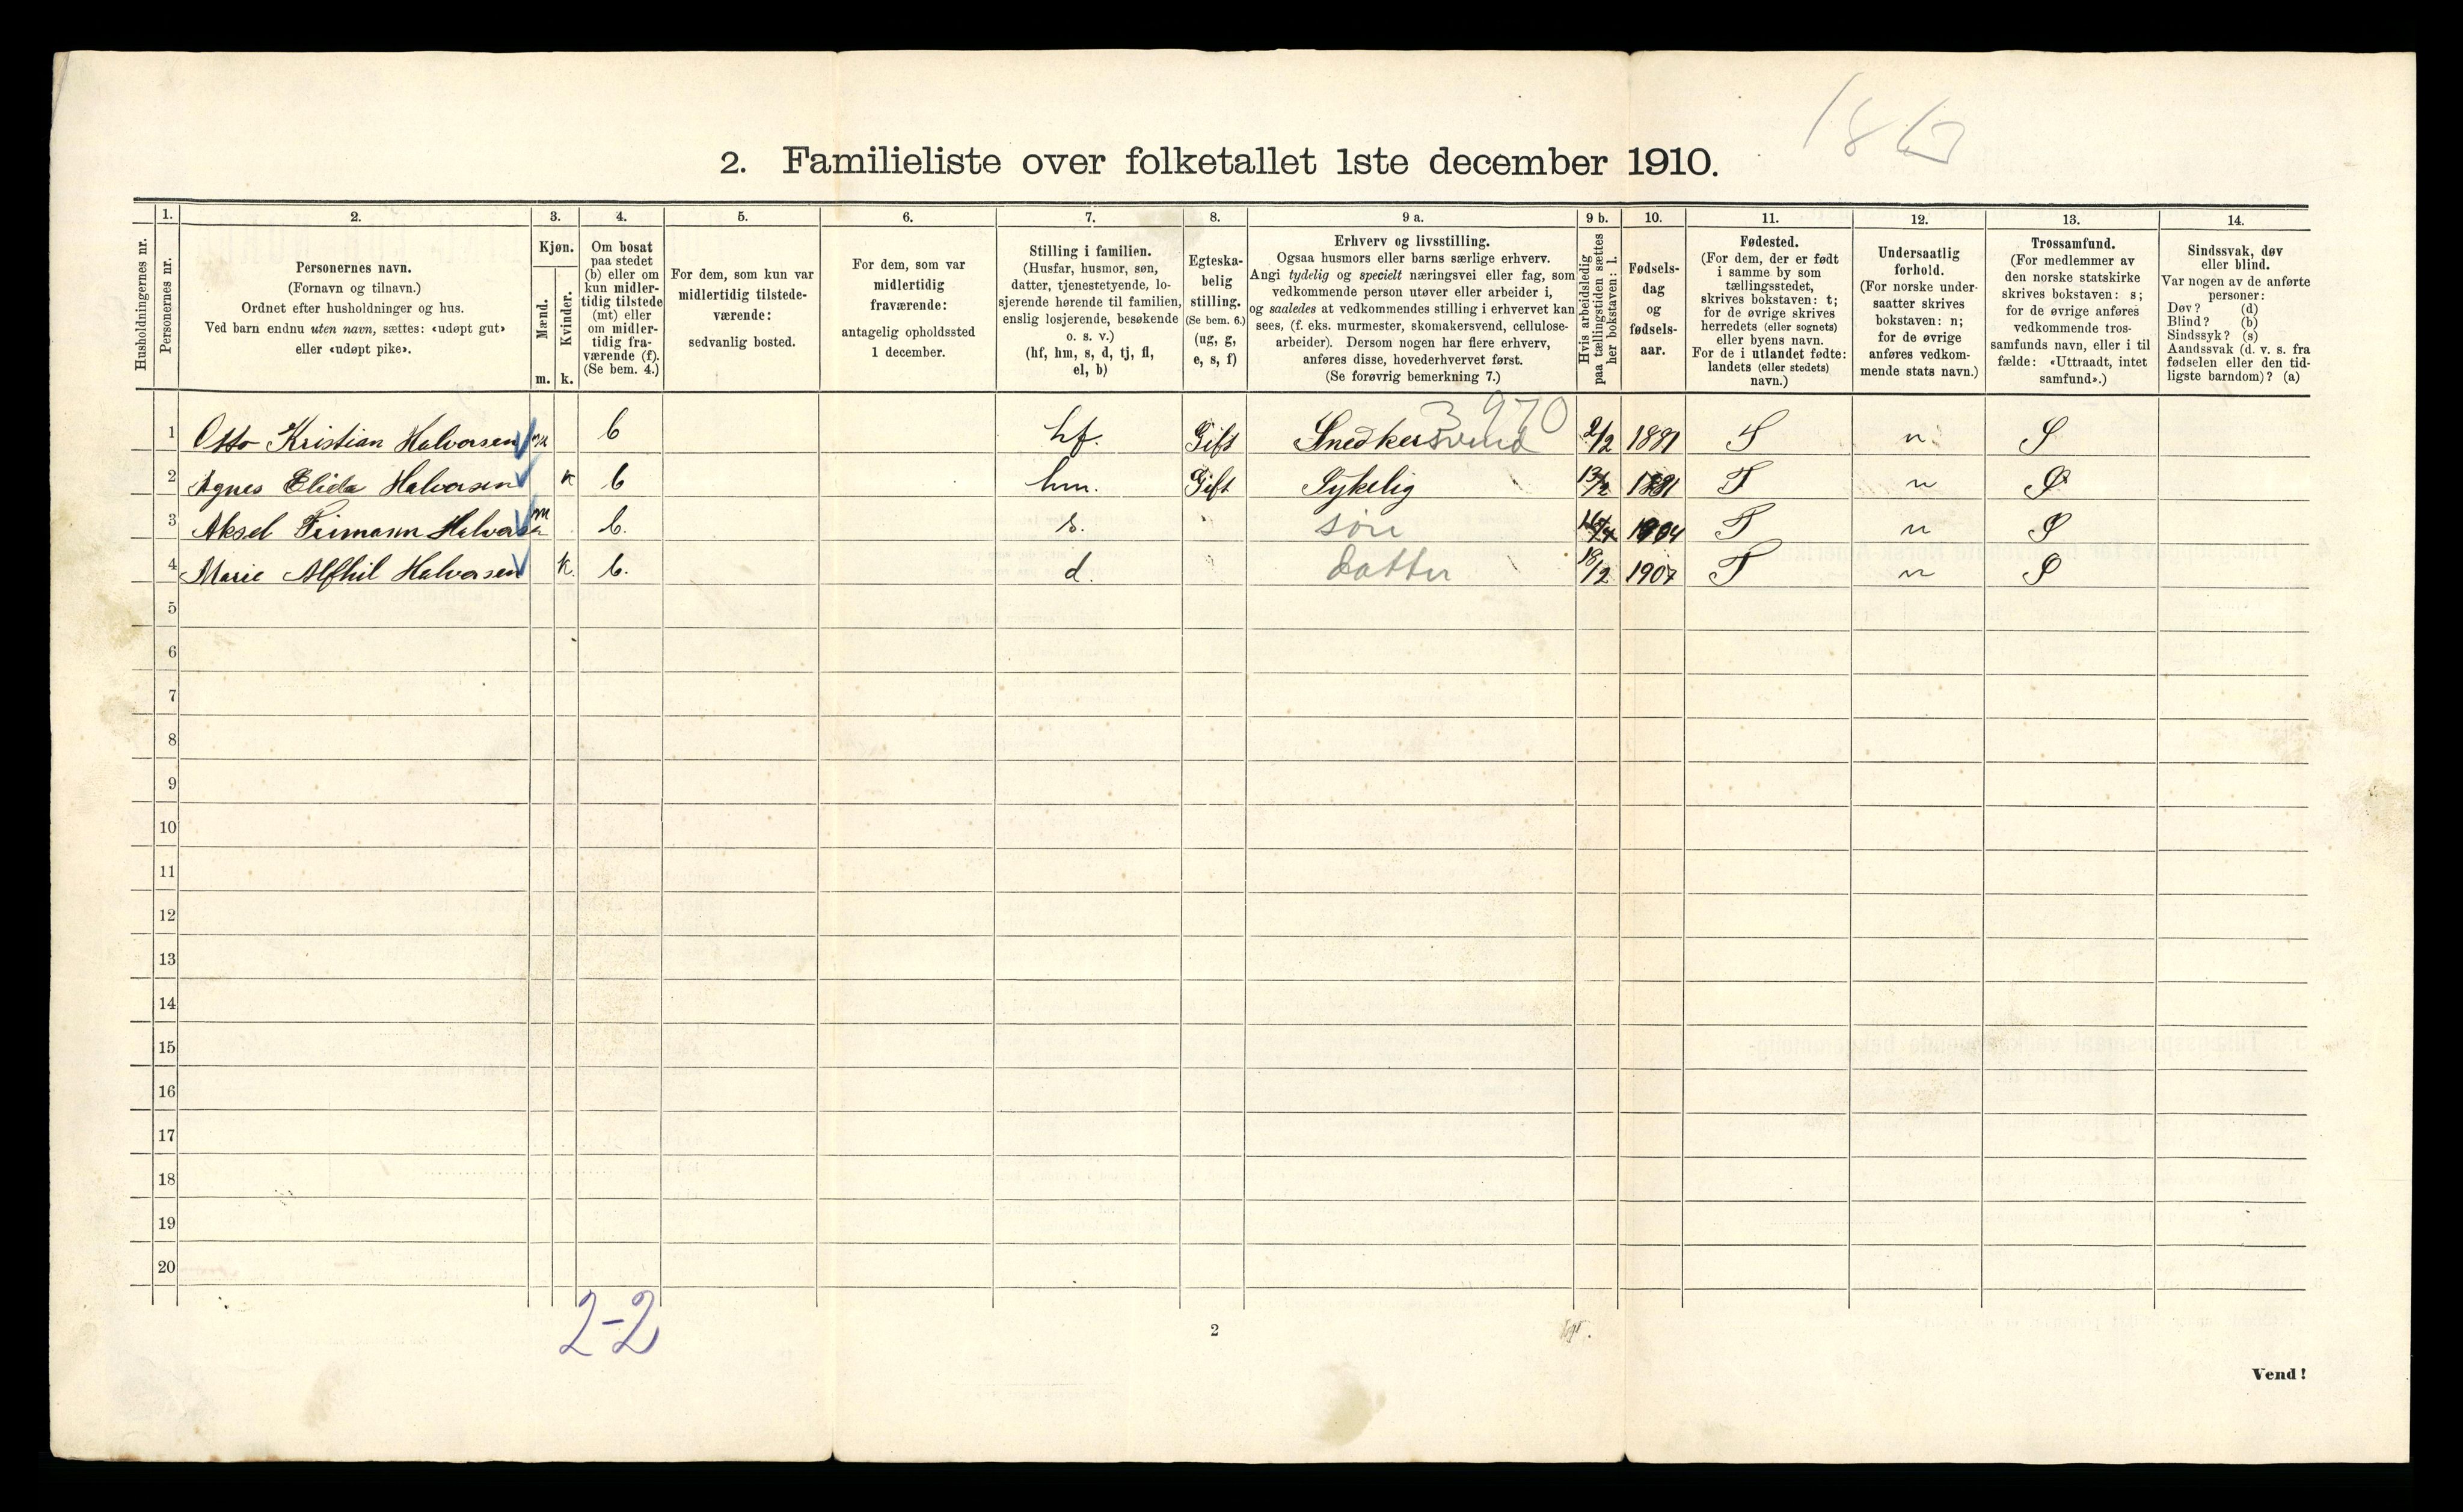 2. Familieliste over folketallet 1ste december 1910.
1. 2. 3. 4. 5. 6. 7. 8. 9 a. 9 b. 10. 11. 12. 13. 14.
Husholdningernes nr.
Personernes nr.
Personernes navn.
(Fornavn og tilnavn.)
Ordnet efter husholdninger og hus.
Ved barn endnu uten navn, sættes: «udøpt gut»
eller «udøpt pike».
Kjøn.
Mænd.
Kvinder.
m. k.
Om bosat
paa stedet
(b) eller om
kun midler-
tidig tilstede
(mt) eller
om midler-
tidig fra-
værende (f).
(Se bem. 4.)
For dem, som kun var
midlertidig tilstede-
værende:
sedvanlig bosted.
For dem, som var
midlertidig
fraværende:
antagelig opholdssted
1 december.
Stilling i familien.
(Husfar, husmor, søn,
datter, tjenestetyende, lo-
sjerende hørende til familien,
enslig losjerende, besøkende
o. s. v.)
(hf, hm, s, d, tj, fl,
el, b)
Egteska-
belig
stilling.
(Se bem. 6.)
(ug, g,
e, s, f)
Erhverv og livsstilling.
Ogsaa husmors eller barns særlige erhverv.
Angi tydelig og specielt næringsvei eller fag, som
vedkommende person utøver eller arbeider i,
og saaledes at vedkommendes stilling i erhvervet kan
sees, (f. eks. murmester, skomakersvend, cellulose-
arbeider). Dersom nogen har flere erhverv,
anføres disse, hovederhvervet først.
(Se forøvrig bemerkning 7.)
Hvis arbeidsledig
paa tællingstiden sættes
her bokstaven: l.
Fødsels-
dag
og
fødsels-
aar.
Fødested.
(For dem, der er født
i samme by som
tællingsstedet,
skrives bokstaven: t;
for de øvrige skrives
herredets (eller sognets)
eller byens navn.
For de i utlandet fødte:
landets (eller stedets)
navn.)
Undersaatlig
forhold.
(For norske under-
saatter skrives
bokstaven: n;
for de øvrige
anføres vedkom-
mende stats navn.)
Trossamfund.
(For medlemmer av
den norske statskirke
skrives bokstaven: s;
for de øvrige anføres
vedkommende tros-
samfunds navn, eller i til
fælde: «Uttraadt, intet
samfund».)
Sindssvak, døv
eller blind.
Var nogen av de anførte
personer:
Døv? (d)
Blind? (b)
Sindssyk? (s)
Aandssvak (d. v. s. fra
fødselen eller den tid-
ligste barndom)? (a)
3970
1 Otto Kristian Halvorsen m b hf. Gift Snedkersvend 2/2 1881 S n S
2 Agnes Elida Halvorsen k b hm. Gift Sykelig 13/2 1881 T n S
3 Aksel Halvorsen m b. s. søn 1904 T n S
4 Marie Alfhil Halvorsen k. b. d. datter 18/2 1907 T n S
5
6
7
8
9
10
11
12
13
14
15
16
17
18
19
20
2-2
2
Vend!